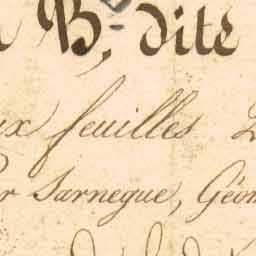 B, dite
ux feuilles
r Sarnegue, Géom